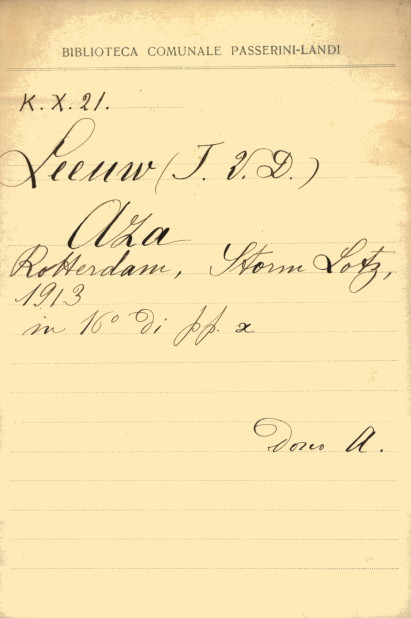 BIBLIOTECA COMUNALE PASSERINI-LANDI
K. X. 21.
Leeuw (J. V. D.)
Aza
Rotterdam, Storm Lotz,
1913
in 16° di pp. x
Dono A.